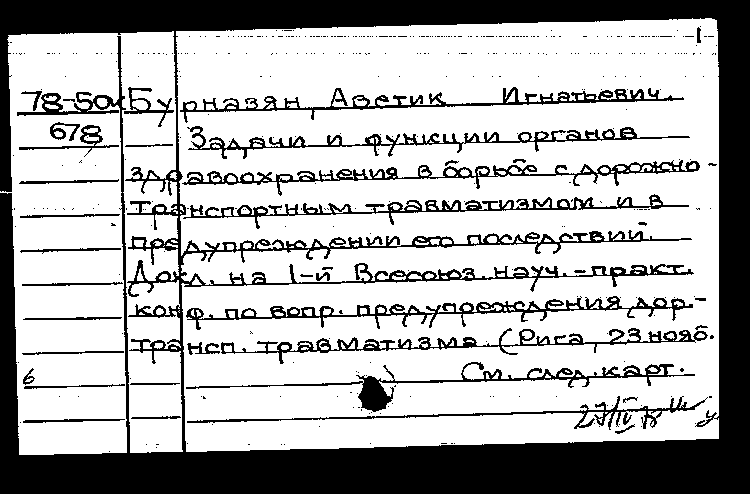 1
78-50к Бурназян, Аветик Игнатьевич.
678 Задачи и функции органов
здравоохранения в борьбе с дорожно-
транспортным травматизмом и в
предупреждении его последствий.
Докл. на 1-й Всесоюз. науч.-практ.
конф. по вопр. предупреждения дор.-
трансп. травматизма (Рига, 23 нояб.
6 См. след. карт.
27/IV 78